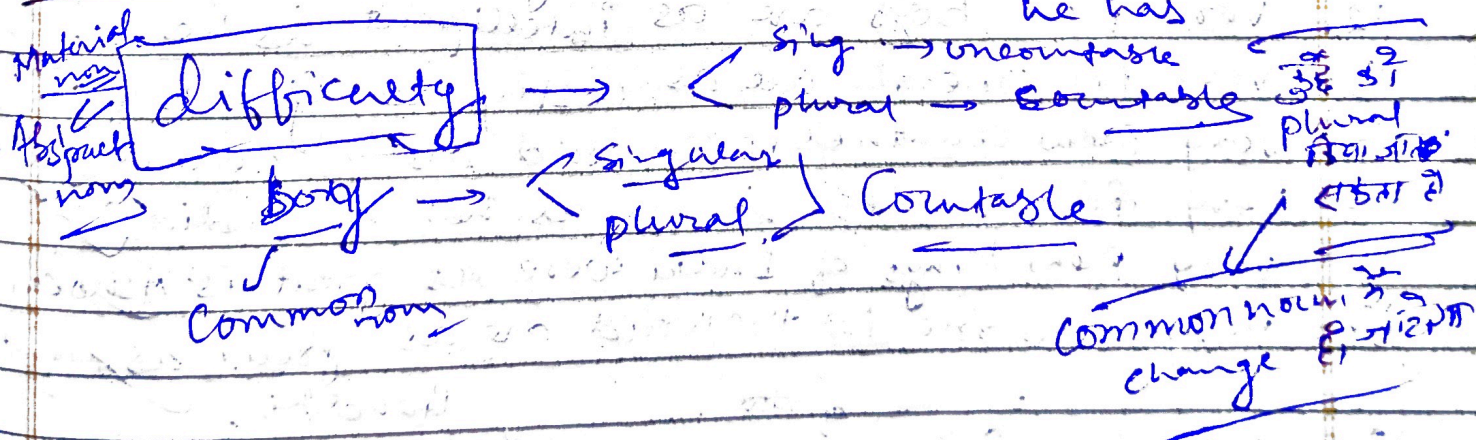 he has
Material noun
Abstract noun
difficulty → sing → uncountable
plural → Countable
plural
किया जा
सकता है
boy → singular
plural } Countable
Common noun
Common noun में
change हो